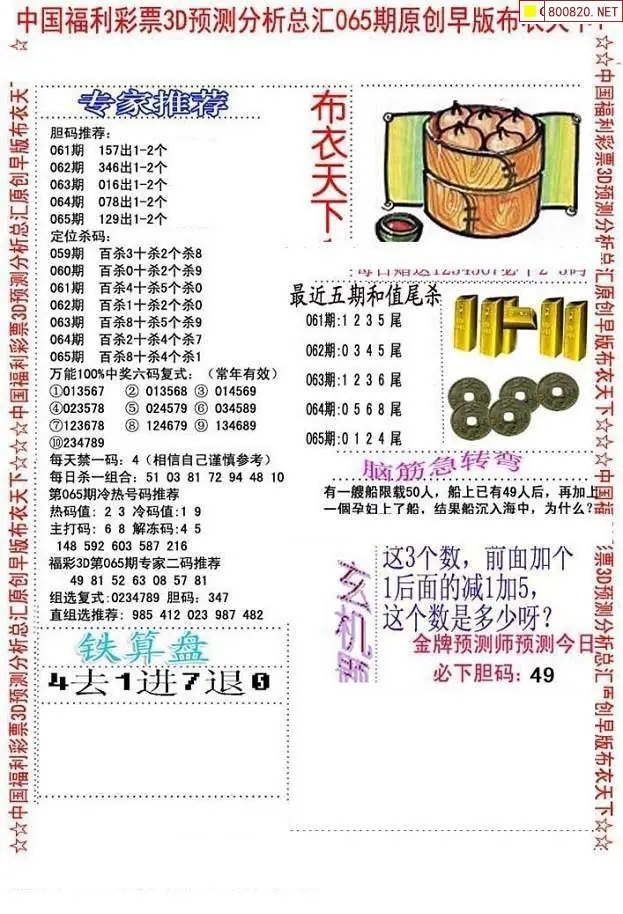 中国福利彩票3D预测分析总汇065期原创早版布衣天下
800820.NET
☆中国福利彩票3D预测分析总汇原创早版布衣天下☆☆☆中国福利彩票3D预测分析总汇原创早版布衣天
专家推荐
胆码推荐:
061期 157出1-2个
062期 346出1-2个
063期 016出1-2个
064期 078出1-2个
065期 129出1-2个
定位杀码:
059期 百杀3十杀2个杀8
060期 百杀0十杀2个杀9
061期 百杀4十杀5个杀0
062期 百杀1十杀2个杀0
063期 百杀8十杀5个杀9
064期 百杀2十杀4个杀7
065期 百杀8十杀4个杀1
万能100%中奖六码复式:(常年有效)
①013567 ② 013568 ③ 014569
④023578 ⑤ 024579 ⑥ 034589
⑦123678 ⑧ 124679 ⑨ 134689
⑩234789
每天禁一码: 4(相信自己谨慎参考)
每日杀一组合: 51 03 81 72 94 48 10
第065期冷热号码推荐
热码值: 2 3 冷码值:1 9
主打码: 6 8 解冻码:4 5
148 592 603 587 216
福彩3D第065期专家二码推荐
49 81 52 63 08 57 81
组选复式:0234789 胆码: 347
直组选推荐: 985 412 023 987 482
铁算盘
4去1进7退0
布衣天下
每日赠送1234567必下2-3码
最近五期和值尾杀
061期:1 2 3 5 尾
062期:0 3 4 5 尾
063期:1 2 3 6 尾
064期:0 5 6 8 尾
065期:0 1 2 4 尾
脑筋急转弯
有一艘船限载50人，船上已有49人后，再加上
一個孕妇上了船，结果船沉入海中，为什么?
玄机
这3个数，前面加个
1后面的减1加5，
这个数是多少呀?
金牌预测师预测今日
必下胆码: 49
☆☆中国福利彩票3D预测分析总汇原创早版布衣天下☆☆中国福
彩票3D预测分析总汇原创早版布衣天下☆☆